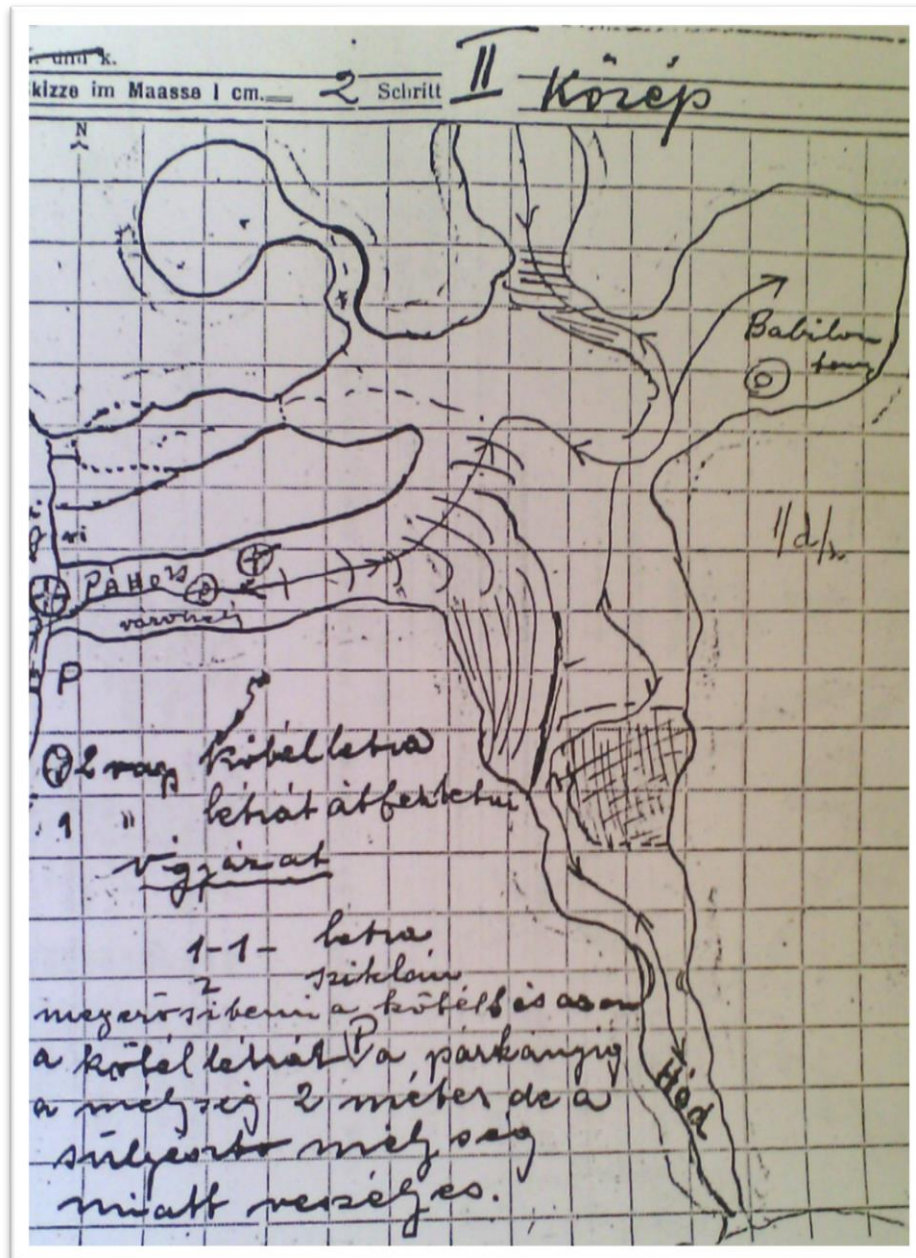 . und k.
Skizze im Maasse 1 cm. 2 Schritt II Közép
N
Babilon
1/d/
PáHoly
városház
P
2 vagy kötélletra
1 " létrát átfektetni
Vigyázat
1-1- letra
2 sziklám
megerősiteni a kötélt és azon
a kötéllétrát P a párkányig
a mélység 2 méter de a
sülyesztő mélység
miatt veszélyes.
Híd